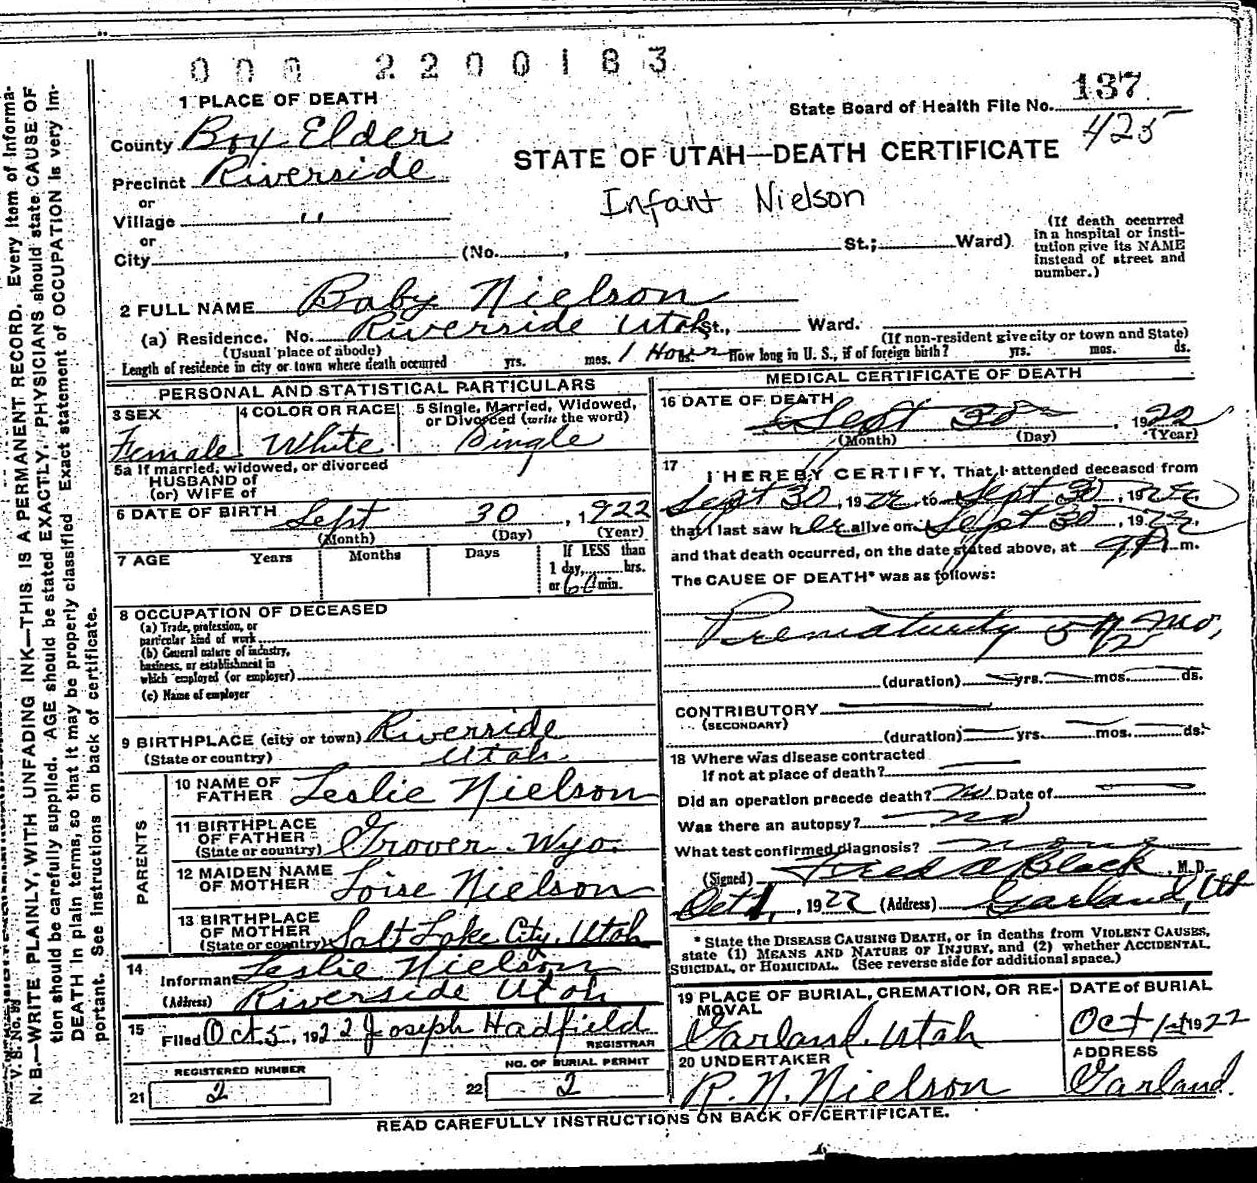 000 2200183
1 PLACE OF DEATH
State Board of Health File No. 137
425
County Box Elder
STATE OF UTAH—DEATH CERTIFICATE
Precinct Riverside
or
Infant Nielson
Village "
or
City (No. , St.; Ward)
(If death occurred in a hospital or institution give its NAME instead of street and number.)
2 FULL NAME Baby Nielson
(a) Residence. No. Riverside Utah St., Ward.
(Usual place of abode) (If non-resident give city or town and State)
Length of residence in city or town where death occurred yrs. mos. 1 Hour How long in U. S., if of foreign birth? yrs. mos. ds.
PERSONAL AND STATISTICAL PARTICULARS
3 SEX Female
4 COLOR OR RACE White
5 Single, Married, Widowed, or Divorced (write the word) Single
5a If married, widowed, or divorced
HUSBAND of
(or) WIFE of
6 DATE OF BIRTH Sept 30, 1922
(Month) (Day) (Year)
7 AGE Years Months Days If LESS than 1 day, hrs. or 60 min.
8 OCCUPATION OF DECEASED
(a) Trade, profession, or particular kind of work
(b) General nature of industry, business, or establishment in which employed (or employer)
(c) Name of employer
9 BIRTHPLACE (city or town) Riverside
(State or country) Utah
PARENTS
10 NAME OF FATHER Leslie Nielson
11 BIRTHPLACE OF FATHER (State or country) Grover Wyo.
12 MAIDEN NAME OF MOTHER Loise Nielson
13 BIRTHPLACE OF MOTHER (State or country) Salt Lake City, Utah
14 Informant Leslie Nielson
(Address) Riverside Utah
15 Filed Oct 5, 1922 Joseph Hadfield
REGISTRAR
REGISTERED NUMBER
21 2
NO. OF BURIAL PERMIT
22 2
MEDICAL CERTIFICATE OF DEATH
16 DATE OF DEATH Sept 30, 1922
(Month) (Day) (Year)
17 I HEREBY CERTIFY, That I attended deceased from
Sept 30, 1922, to Sept 30, 1922,
that I last saw her alive on Sept 30, 1922
and that death occurred, on the date stated above, at 9 P m.
The CAUSE OF DEATH* was as follows:
Prematurity 5 1/2 mo,
(duration) yrs. mos. ds.
CONTRIBUTORY
(SECONDARY)
(duration) yrs. mos. ds.
18 Where was disease contracted
If not at place of death?
Did an operation precede death? no Date of
Was there an autopsy? no
What test confirmed diagnosis? none
(Signed) Fred A Black, M. D.
Oct 1, 1922 (Address) Garland, Ut
* State the DISEASE CAUSING DEATH, or in deaths from VIOLENT CAUSES, state (1) MEANS AND NATURE OF INJURY, and (2) whether ACCIDENTAL, SUICIDAL, or HOMICIDAL. (See reverse side for additional space.)
19 PLACE OF BURIAL, CREMATION, OR REMOVAL Garland, Utah
DATE of BURIAL Oct 1st 1922
20 UNDERTAKER R. N. Nielson
ADDRESS Garland.
READ CAREFULLY INSTRUCTIONS ON BACK OF CERTIFICATE.
N. B—WRITE PLAINLY, WITH UNFADING INK—THIS IS A PERMANENT RECORD. Every item of information should be carefully supplied. AGE should be stated EXACTLY. PHYSICIANS should state CAUSE OF DEATH in plain terms, so that it may be properly classified. Exact statement of OCCUPATION is very important. See instructions on back of certificate.